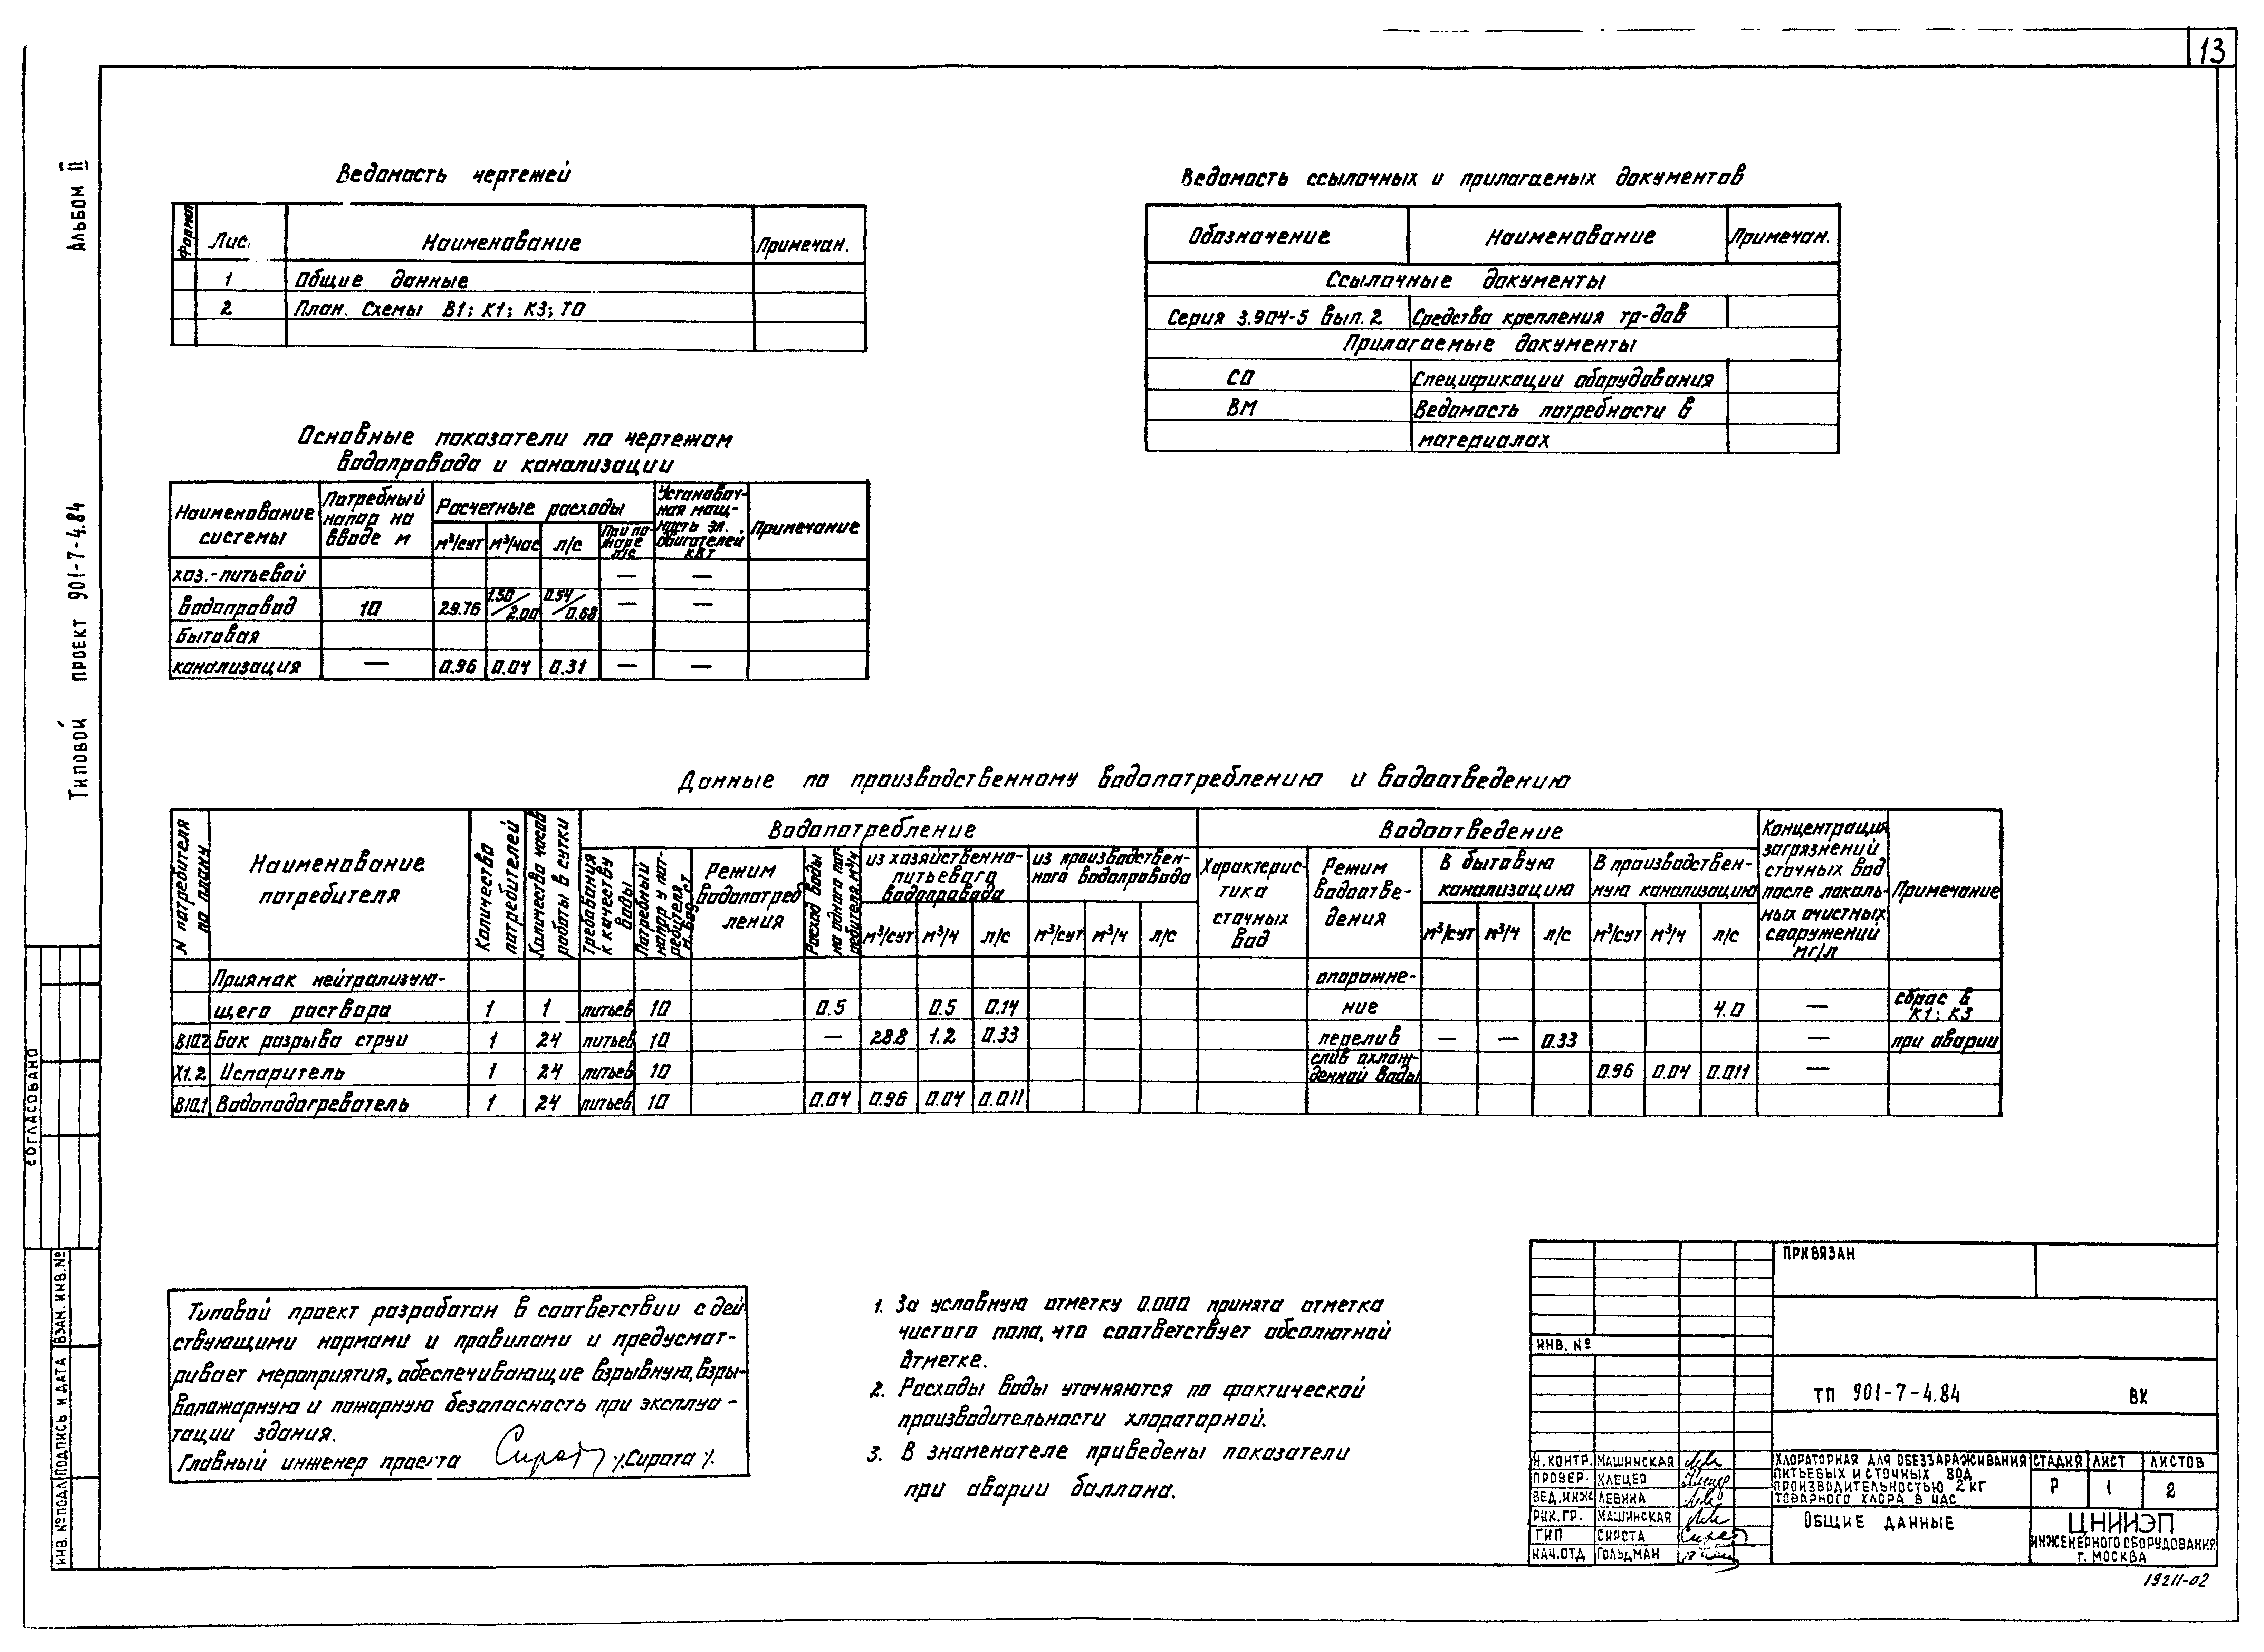 13
Альбом II
Типовой проект 901-7-4.84
Ведомость чертежей
Формат
Лис.
Наименование
Примечан.
1 Общие данные
2 План. Схемы В1; К1; К3; Т0
Ведомость ссылочных и прилагаемых документов
Обозначение Наименование Примечан.
Ссылочные документы
Серия 3.904-5 Вып. 2 Средства крепления тр-дов
Прилагаемые документы
СО Спецификации оборудования
ВМ Ведомость потребности в
материалах
Основные показатели по чертежам
водопровода и канализации
Наименование
системы
Потребный
напор на
вводе м
Расчетные расходы
м³/сут м³/час л/с
При по-
жаре
л/с
Установоч-
ная мощ-
ность эл.
двигателей
кВт
Примечание
хоз.-питьевой — —
водопровод 10 29.76 1.50/2.00 0.54/0.68 — —
Бытовая
канализация — 0.96 0.04 0.31 — —
Данные по производственному водопотреблению и водоотведению
N потребителя
по плану
Наименование
потребителя
Количество
потребителей
Количество часов
работы в сутки
Водопотребление
Требования
к качеству
воды
Потребный
напор у пот-
ребителя
м. вод. ст
Режим
водопотреб
ления
Расход воды
на одного пот-
ребителя м³/ч
из хозяйственно-
питьевого
водопровода
м³/сут м³/ч л/с
из производствен-
ного водопровода
м³/сут м³/ч л/с
Водоотведение
Характерис-
тика
сточных
вод
Режим
водоотве-
дения
В бытовую
канализацию
м³/сут м³/ч л/с
В производствен-
ную канализацию
м³/сут м³/ч л/с
Концентрация
загрязнений
сточных вод
после локаль-
ных очистных
сооружений
мг/л
Примечание
Приямок нейтрализую- опорожне-
щего раствора 1 1 питьев 10 0.5 0.5 0.14 ние 4.0 — сброс в
К1; К3
В10.2 Бак разрыва струи 1 24 питьев 10 — 28.8 1.2 0.33 перелив — — 0.33 — при аварии
Х1.2 Испаритель 1 24 питьев 10 слив охлаж-
денной воды 0.96 0.04 0.011 —
В10.1 Водоподогреватель 1 24 питьев 10 0.04 0.96 0.04 0.011
Типовой проект разработан в соответствии с дей-
ствующими нормами и правилами и предусмат-
ривает мероприятия, обеспечивающие взрывную, взры-
вопожарную и пожарную безопасность при эксплуа-
тации здания.
Главный инженер проекта Сирота /Сирота/.
1. За условную отметку 0.000 принята отметка
чистого пола, что соответствует абсолютной
отметке.
2. Расходы воды уточняются по фактической
производительности хлораторной.
3. В знаменателе приведены показатели
при аварии баллона.
СОГЛАСОВАНО
ИНВ. № ПОДЛ ПОДПИСЬ И ДАТА ВЗАМ. ИНВ. №
ПРИВЯЗАН
ИНВ. №
ТП 901-7-4.84 ВК
Н.КОНТР. МАШИНСКАЯ
ПРОВЕР. КЛЕЦЕР
ВЕД.ИНЖ ЛЕВИНА
РУК.ГР. МАШИНСКАЯ
ГИП СИРОТА
НАЧ.ОТД ГОЛЬДМАН
ХЛОРАТОРНАЯ ДЛЯ ОБЕЗЗАРАЖИВАНИЯ
ПИТЬЕВЫХ И СТОЧНЫХ ВОД
ПРОИЗВОДИТЕЛЬНОСТЬЮ 2 КГ
ТОВАРНОГО ХЛОРА В ЧАС
СТАДИЯ ЛИСТ ЛИСТОВ
Р 1 2
ОБЩИЕ ДАННЫЕ
ЦНИИЭП
ИНЖЕНЕРНОГО ОБОРУДОВАНИЯ
Г. МОСКВА
19211-02